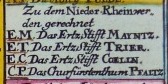 Zu dem Nieder-Rhein wer,
den gerechnet
E.M. Das Ertz Stifft MAYNTZ.
E.T. Das Ertz Stifft TRIER.
E.C. Das Ertz Stifft CŒLLN
C.P. Das Churfürstenthum PFALTZ